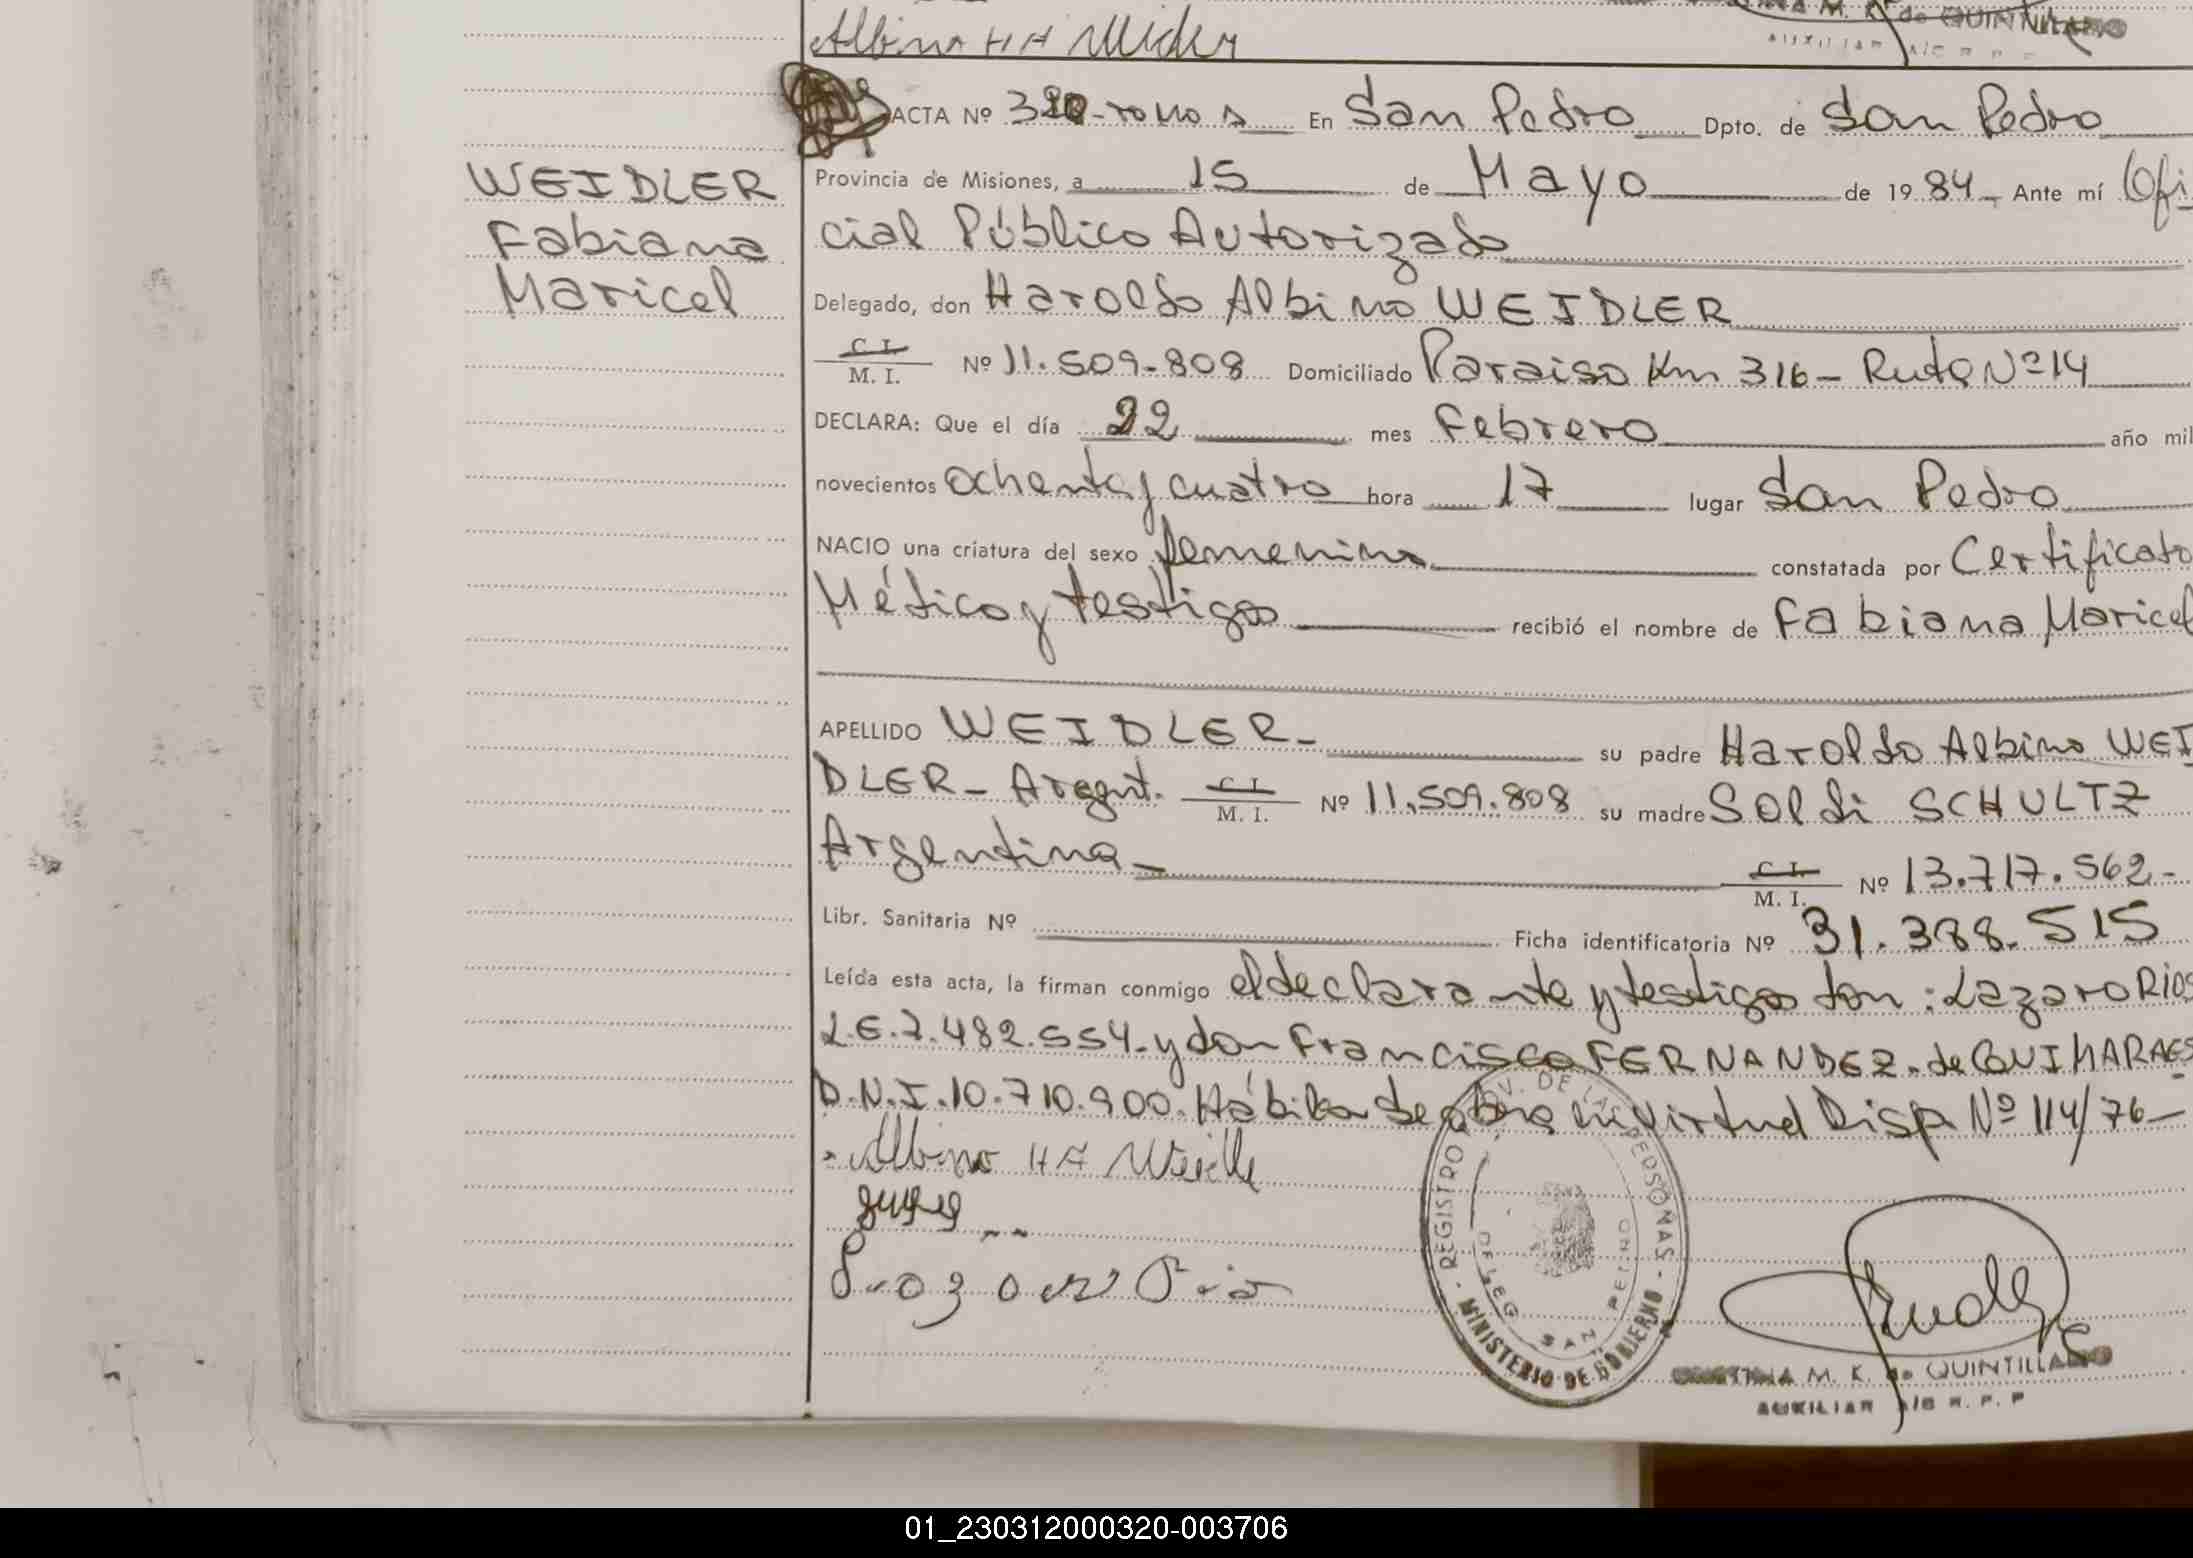 Albino H A
M. K. de QUINTILLANO
AUXILIAR A/C R. P. P
ACTA Nº 320-TOMO En San Pedro Dpto. de San Pedro
WEIDLER
Fabiana
Maricel
Provincia de Misiones, a 15 de Mayo de 1984 - Ante mí Ofi
cial Público Autorizado
Delegado, don Haroldo Albino WEIDLER
C. I.
M. I. Nº 11.509.808 Domiciliado Paraiso Km 316 - Ruta Nº 14
DECLARA: Que el día 22 mes Febrero año mil
novecientos ochenta y cuatro hora 17 lugar San Pedro
NACIO una criatura del sexo femenino constatada por Certificado
Médico y testigos recibió el nombre de Fabiana Maricel
APELLIDO WEIDLER - su padre Haroldo Albino WEI
DLER - Argent. C. I. M. I. Nº 11.509.808 su madre Soldi SCHULTZ
Argentina - C. I. M. I. Nº 13.717.562 -
Libr. Sanitaria Nº Ficha identificatoria Nº 31.388.515
Leída esta acta, la firman conmigo el declarante y testigos don: Lazaro Rios
L.E. 7.482.554 - y don Francisco FERNANDEZ - de GUIMARAES
D.N.I. 10.710.900. Hábiles de en virtud Disp. Nº 114/76 -
Albino H A
REGISTRO PROV. DE LAS PERSONAS - MINISTERIO DE GOBIERNO -
DELEG SAN PEDRO
CRISTINA M. K. de QUINTILLANO
AUXILIAR A/C R. P. P
01_230312000320-003706